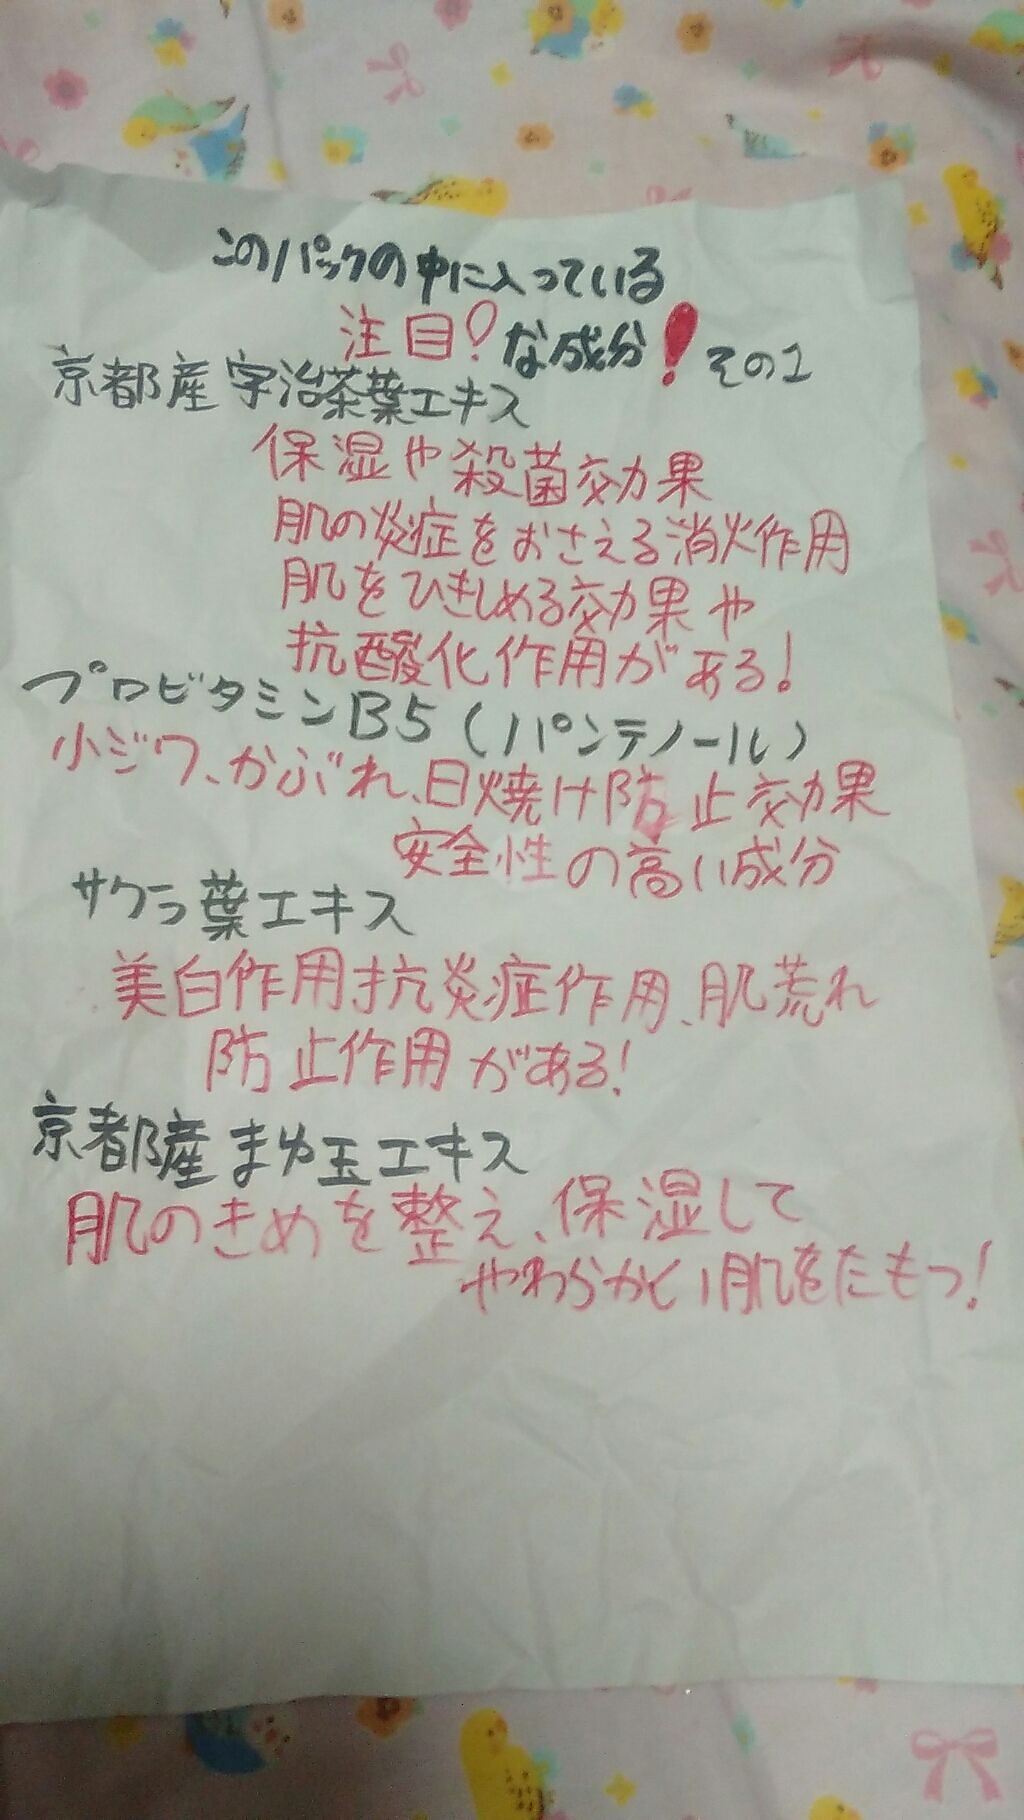 このパックの中に入っている
注目!な成分!その1
京都産宇治茶葉エキス
保湿や殺菌効果
肌の炎症をおさえる消火作用
肌をひきしめる効果や
抗酸化作用がある!
プロビタミンB5(パンテノール)
小ジワ、かぶれ、日焼け防止効果
安全性の高い成分
サクラ葉エキス
美白作用抗炎症作用、肌荒れ
防止作用がある!
京都産まゆ玉エキス
肌のきめを整え、保湿して
やわらかい肌をたもつ!